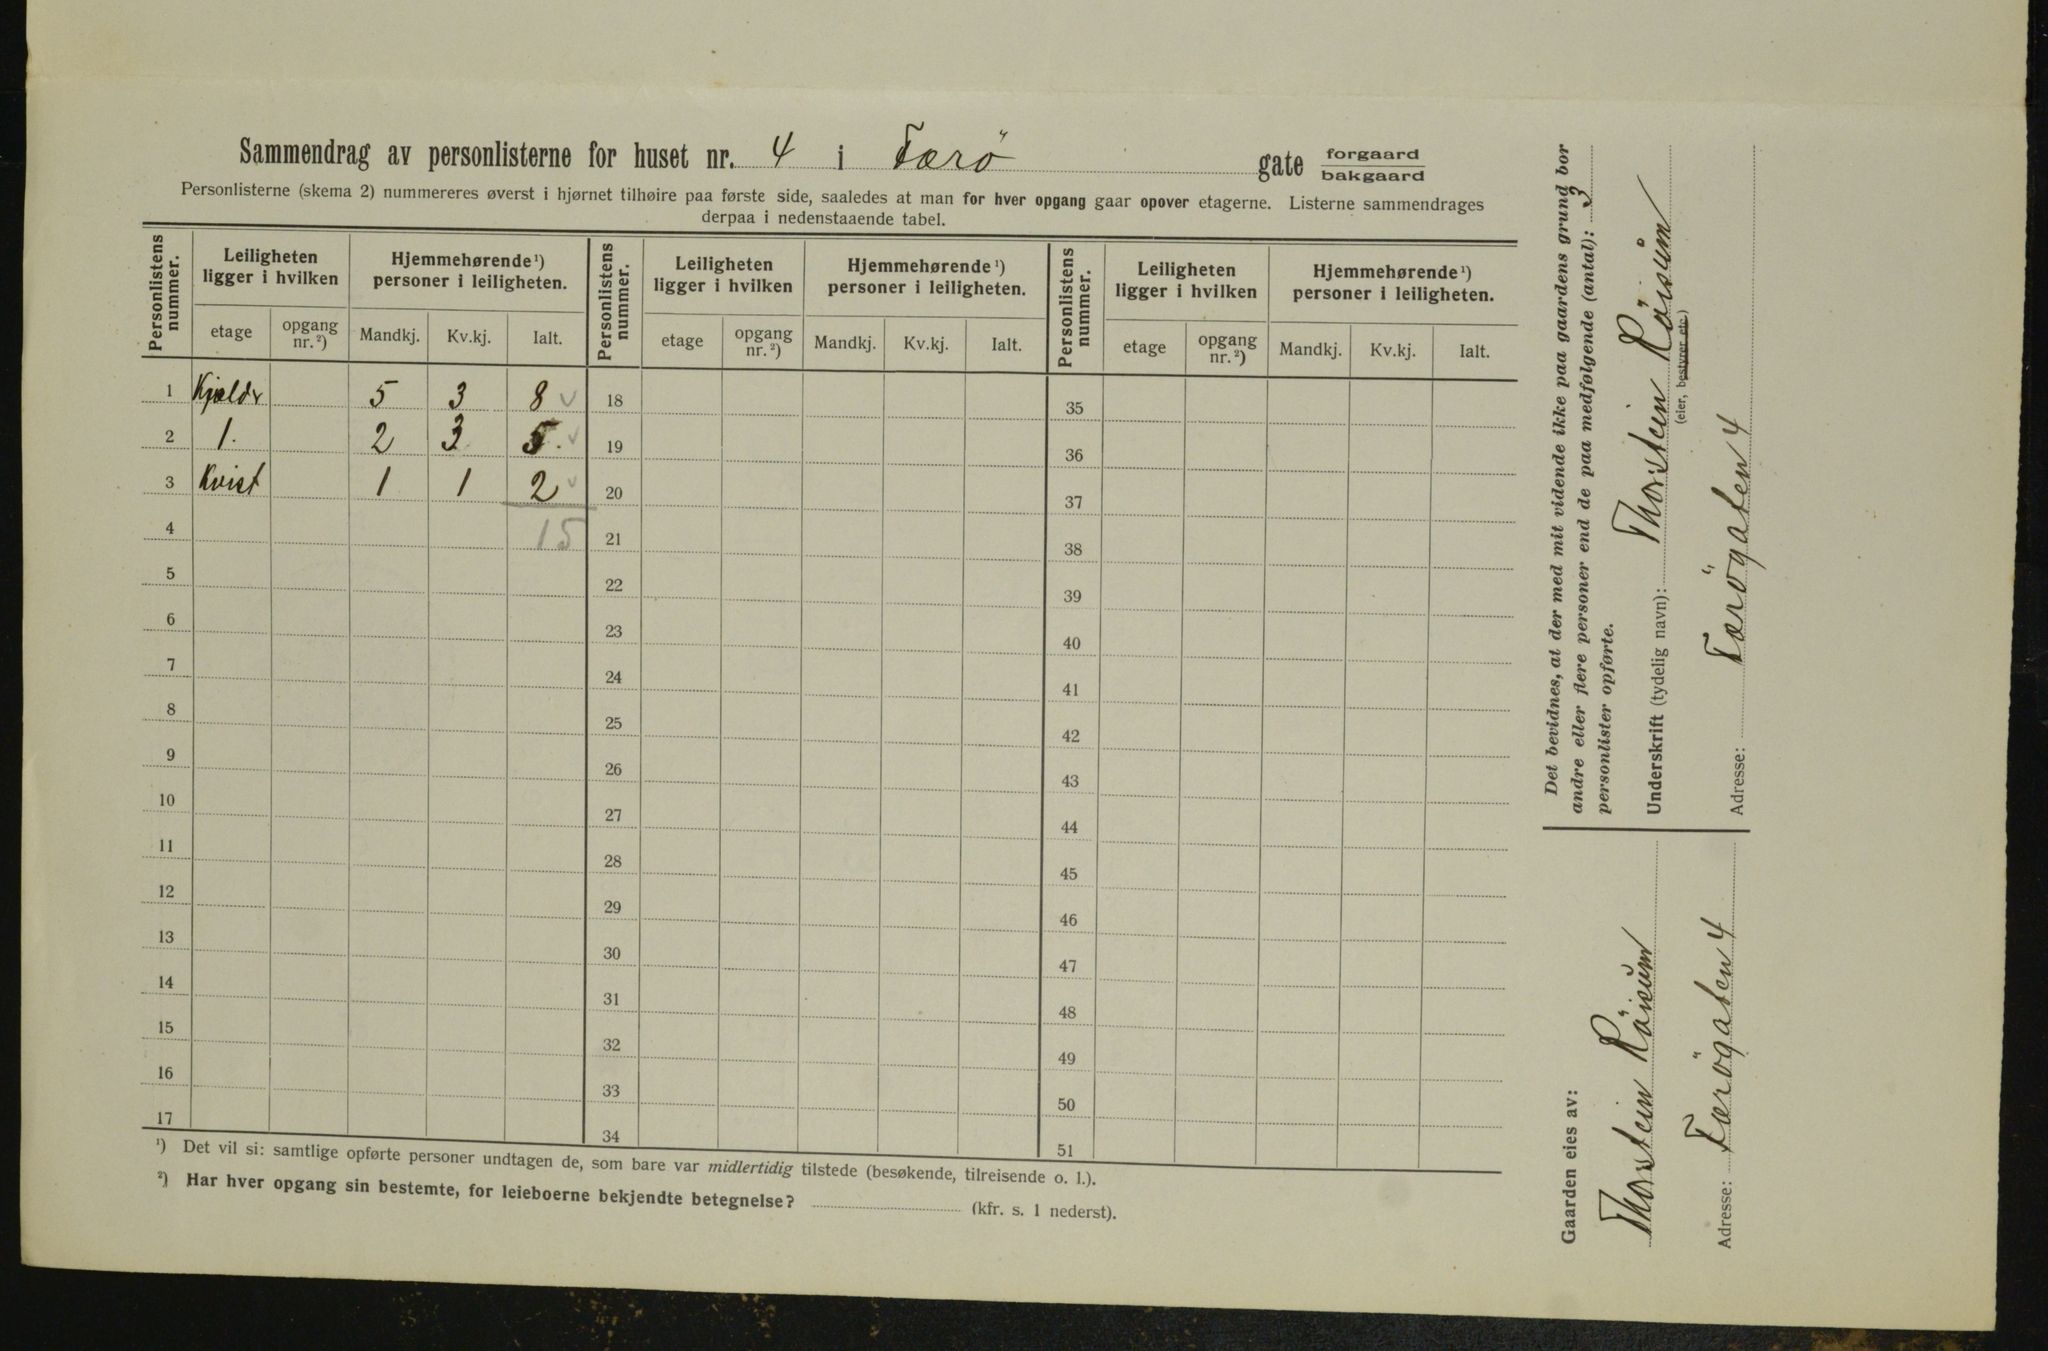 Sammendrag av personlisterne for huset nr. 4 i Færö gate forgaard
bakgaard
Personlisterne (skema 2) nummereres øverst i hjørnet tilhøire paa første side, saaledes at man for hver opgang gaar opover etagerne. Listerne sammendrages
derpaa i nedenstaaende tabel.
Personlistens nummer. Leiligheten ligger i hvilken Hjemmehørende¹) personer i leiligheten. Personlistens nummer. Leiligheten ligger i hvilken Hjemmehørende¹) personer i leiligheten. Personlistens nummer. Leiligheten ligger i hvilken Hjemmehørende¹) personer i leiligheten.
etage opgang nr.²) Mandkj. Kv.kj. Ialt. etage opgang nr.²) Mandkj. Kv.kj. Ialt. etage opgang nr.²) Mandkj. Kv.kj. Ialt.
1 Kjældr 5 3 8 18 35
2 1. 2 3 5. 19 36
3 Kvist 1 1 2 20 37
4 15 21 38
5 22 39
6 23 40
7 24 41
8 25 42
9 26 43
10 27 44
11 28 45
12 29 46
13 30 47
14 31 48
15 32 49
16 33 50
17 34 51
¹) Det vil si: samtlige opførte personer undtagen de, som bare var midlertidig tilstede (besøkende, tilreisende o. l.).
²) Har hver opgang sin bestemte, for leieboerne bekjendte betegnelse? (kfr. s. 1 nederst).
Det bevidnes, at der med mit vidende ikke paa gaardens grund bor
andre eller flere personer end de paa medfølgende (antal): 3
personlister opførte.
Underskrift (tydelig navn): Thorstein
(eier, bestyrer etc.)
Adresse: Færögaten 4
Gaarden eies av:
Thorstein
Adresse: Færögaten 4